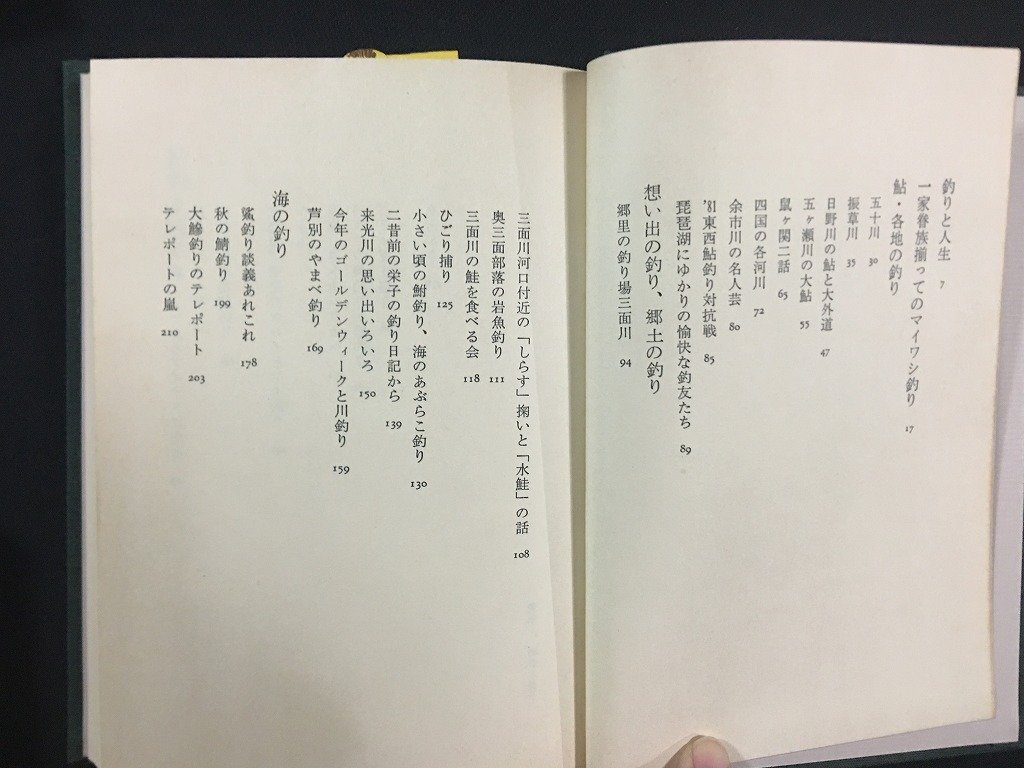 釣りと人生 7
一家眷族揃ってのマイワシ釣り 17
鮎・各地の釣り
五十川 30
振草川 35
日野川の鮎と大外道 47
五ヶ瀬川の大鮎 55
鼠ヶ関二話 65
四国の各河川 72
余市川の名人芸 80
'81東西鮎釣り対抗戦 85
琵琶湖にゆかりの愉快な釣友たち 89
想い出の釣り、郷土の釣り
郷里の釣り場三面川 94
三面川河口付近の「しらす」掬いと「水鮭」の話 108
奥三面部落の岩魚釣り 111
三面川の鮭を食べる会 118
ひごり捕り 125
小さい頃の鮒釣り、海のあぶらこ釣り 130
二昔前の栄子の釣り日記から 139
来光川の思い出いろいろ 150
今年のゴールデンウィークと川釣り 159
芦別のやまべ釣り 169
海の釣り
鯊釣り談義あれこれ 178
秋の鯖釣り 199
大鰺釣りのテレポート 203
テレポートの嵐 210